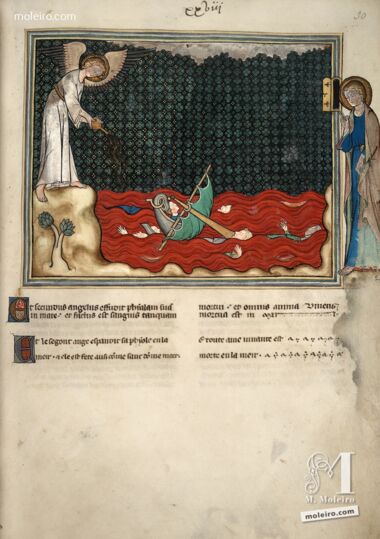 moleiro.com
xxviij
30
Et secundus angelus effudit phialam suā
in mare · et factus est sanguis tanquam
mortui · et omnis anima viuens
mortua est in mari
Et le segont ange espandit sa phiole en la
meir · et ele est fete ausi cōme sanc dōme mort
E toute ame uiuante est
morte en la meir ·
M
M. Moleiro
moleiro.com